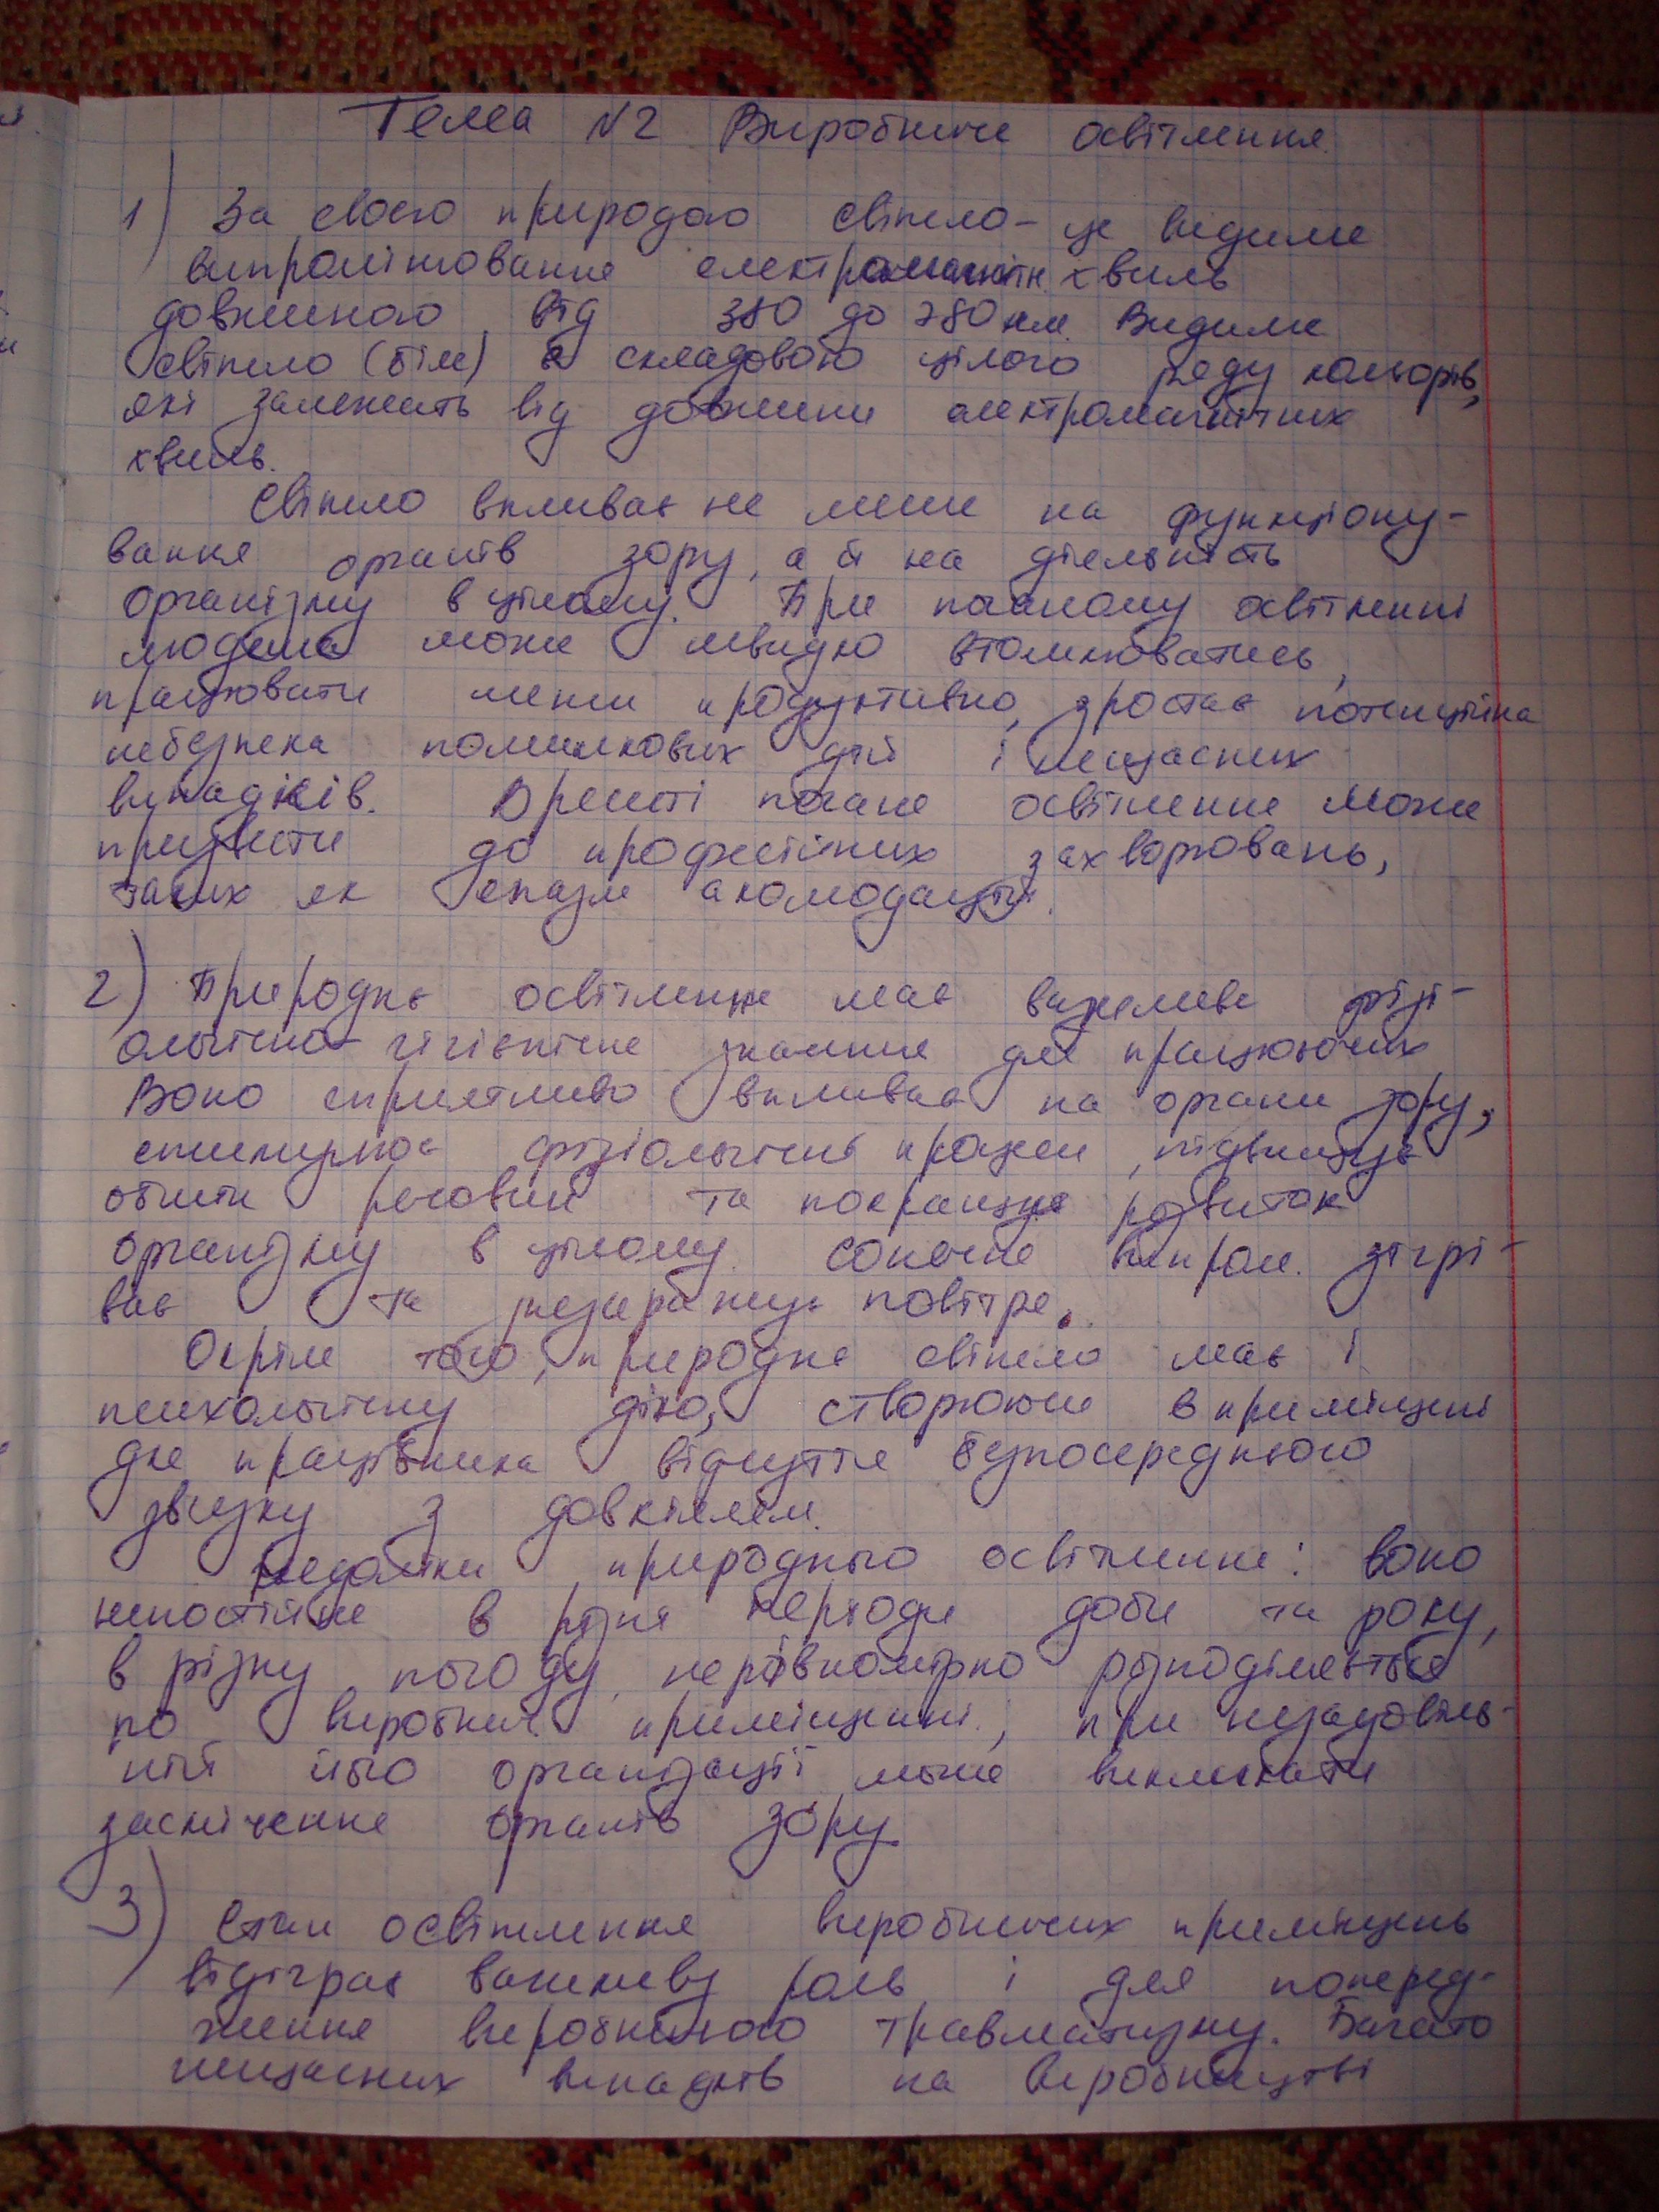 Тема №2 Виробниче освітлення.
1) За своєю природою світло - це видиме
випромінювання електромагнітн. хвиль
довжиною від 380 до 780 нм. Видиме
світло (біле) є складовою цілого ряду кольорів,
які залежать від довжини електромагнітних
хвиль.
Світло впливає не лише на функціону-
вання органів зору, а й на діяльність
організму в цілому. При поганому освітленні
людина може швидко втомлюватись,
працювати менш продуктивно, зростає потенційна
небезпека помилкових дій і нещасних
випадків. Врешті погане освітлення може
призвести до професійних захворювань,
таких як спазм акомодації.
2) Природнє освітлення має важливе фізі-
ологічно-гігієнічне значення для працюючих
Воно сприятливо впливає на органи зору,
стимулює фізіологічні процеси, підвищує
обмін речовин та покращує розвиток
організму в цілому. Сонячне випром. зігрі-
ває та знезаражує повітря.
Окрім того, природнє світло має і
психологічну дію, створююче в приміщені
для працівника відчуття безпосереднього
звязку з довкіллям.
Недоліки природнього освітлення: воно
непостійне в різні періоди доби та року,
в різну погоду, нерівномірно розподіляється
по виробнич. приміщенні, при незадовіль-
ній його організації може викликати
засліплення органів зору.
3) Стан освітлення виробничих приміщень
відіграє важливу роль і для поперед-
ження виробничого травматизму. Багато
нещасних випадків на виробництві